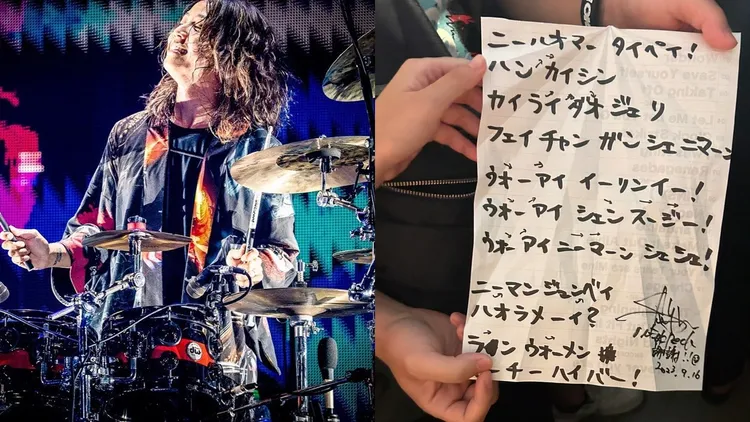 ニーハオマー タイペイ!
ハン カイシン
カイ ライ ダオ ジェ リ
フェイ チャン ガン シェ ニマーン
ウォーアイ イーリンイー!
ウォーアイ シェン スージー!
ウォーアイ ニーマーン シェシェ!
ニーマンジュンベイ
ハオラメーイ?
ラン ウォーメン
ーチー ハイバー!
謝謝!!
2023.9.16
dw
Save Yourself
Taking Off